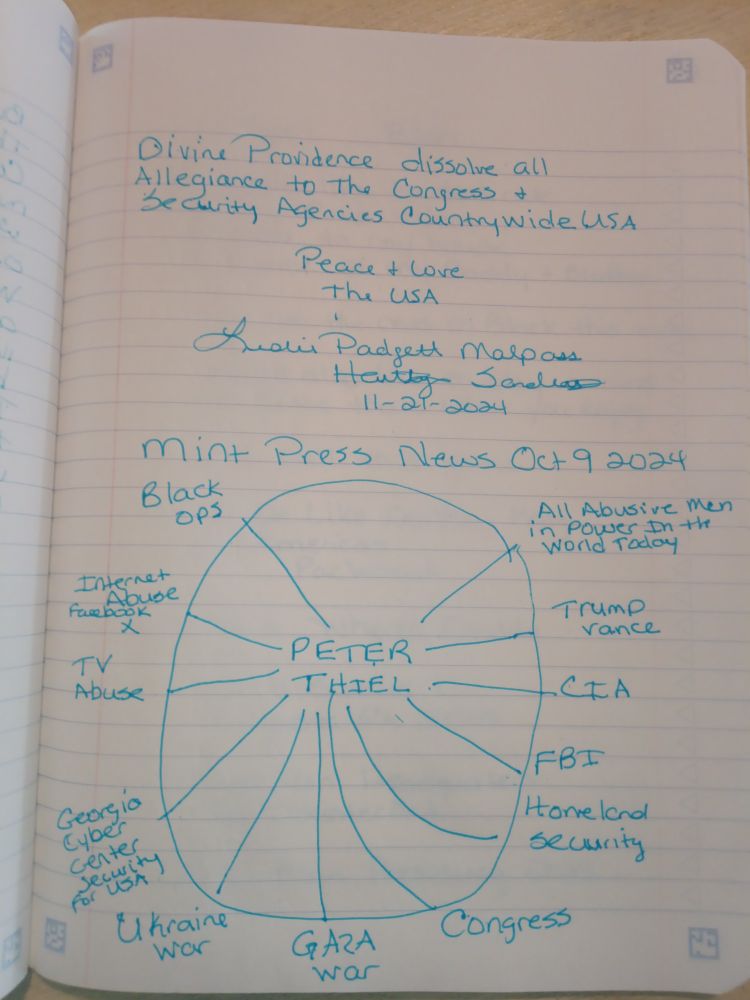 Divine Providence dissolve all
Allegiance to The Congress +
Security Agencies CountryWide USA
Peace + Love
The USA
Padgett Malpass
11-21-2024
Mint Press News Oct 9 2024
Black
OPS
All Abusive Men
in Power In the
World Today
Internet
Abuse
Facebook
X
Trump
Vance
PETER
THIEL
TV
Abuse
CIA
FBI
Homeland
Security
Georgia
Cyber
Center
Security
For USA
Ukraine
War
GAZA
War
Congress